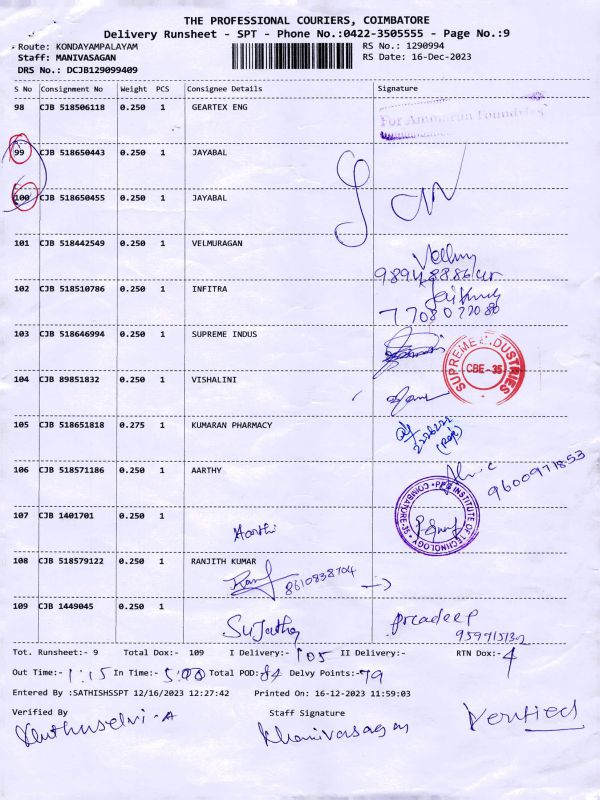 THE PROFESSIONAL COURIERS, COIMBATORE
Delivery Runsheet - SPT - Phone No.:0422-3505555 - Page No.:9
Route: KONDAYAMPALAYAM RS No.: 1290994
Staff: MANIVASAGAN RS Date: 16-Dec-2023
DRS No.: DCJB129099409
S No Consignment No Weight PCS Consignee Details Signature
98 CJB 518506118 0.250 1 GEARTEX ENG
For Ammarun Foundries
99 CJB 518650443 0.250 1 JAYABAL
100 CJB 518650455 0.250 1 JAYABAL
101 CJB 518442549 0.250 1 VELMURAGAN
102 CJB 518510786 0.250 1 INFITRA
103 CJB 518646994 0.250 1 SUPREME INDUS
SUPREME INDUSTRIES CBE-35
104 CJB 89851832 0.250 1 VISHALINI
105 CJB 518651818 0.275 1 KUMARAN PHARMACY
106 CJB 518571186 0.250 1 AARTHY
9600971853
INSTITUTE OF TECHNOLOGY COIMBATORE
107 CJB 1401701 0.250 1
Aarthi
108 CJB 518579122 0.250 1 RANJITH KUMAR
8610838704
109 CJB 1449045 0.250 1
Sujatha Pradeep
Tot. Runsheet:- 9 Total Dox:- 109 I Delivery:- 105 II Delivery:- RTN Dox:- 4
Out Time:- 1:15 In Time:- 5:00 Total POD: 84 Delvy Points:- 79
Entered By :SATHISHSSPT 12/16/2023 12:27:42 Printed On: 16-12-2023 11:59:03
Verified By Staff Signature Verified
Muthuselvi-A Manivasagan